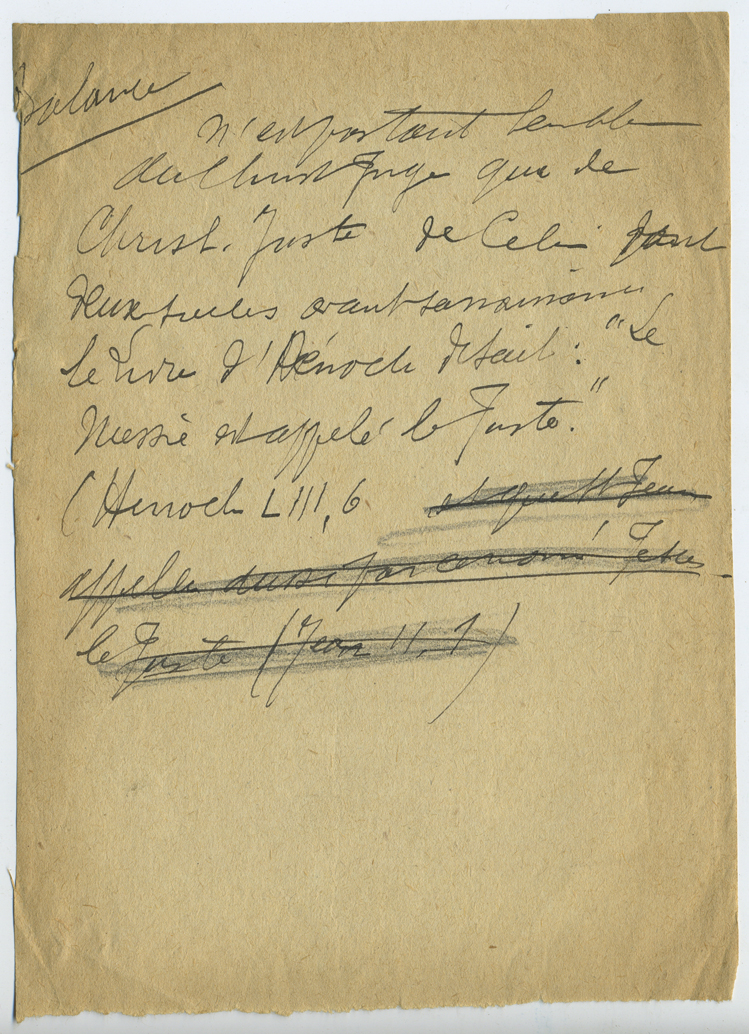 Balance
n'est pas tant l'emblème
du Christ Juge que de
Christ. Juste de Celui dont
deux siècles avant sa naissance
le Livre d'Hénoch disait : "Le
Messie est appelé le Juste."
(Henoch LIII, 6 et que St Jean
appelle aussi par ce nom Jésus
le Juste (Jean II, 1)